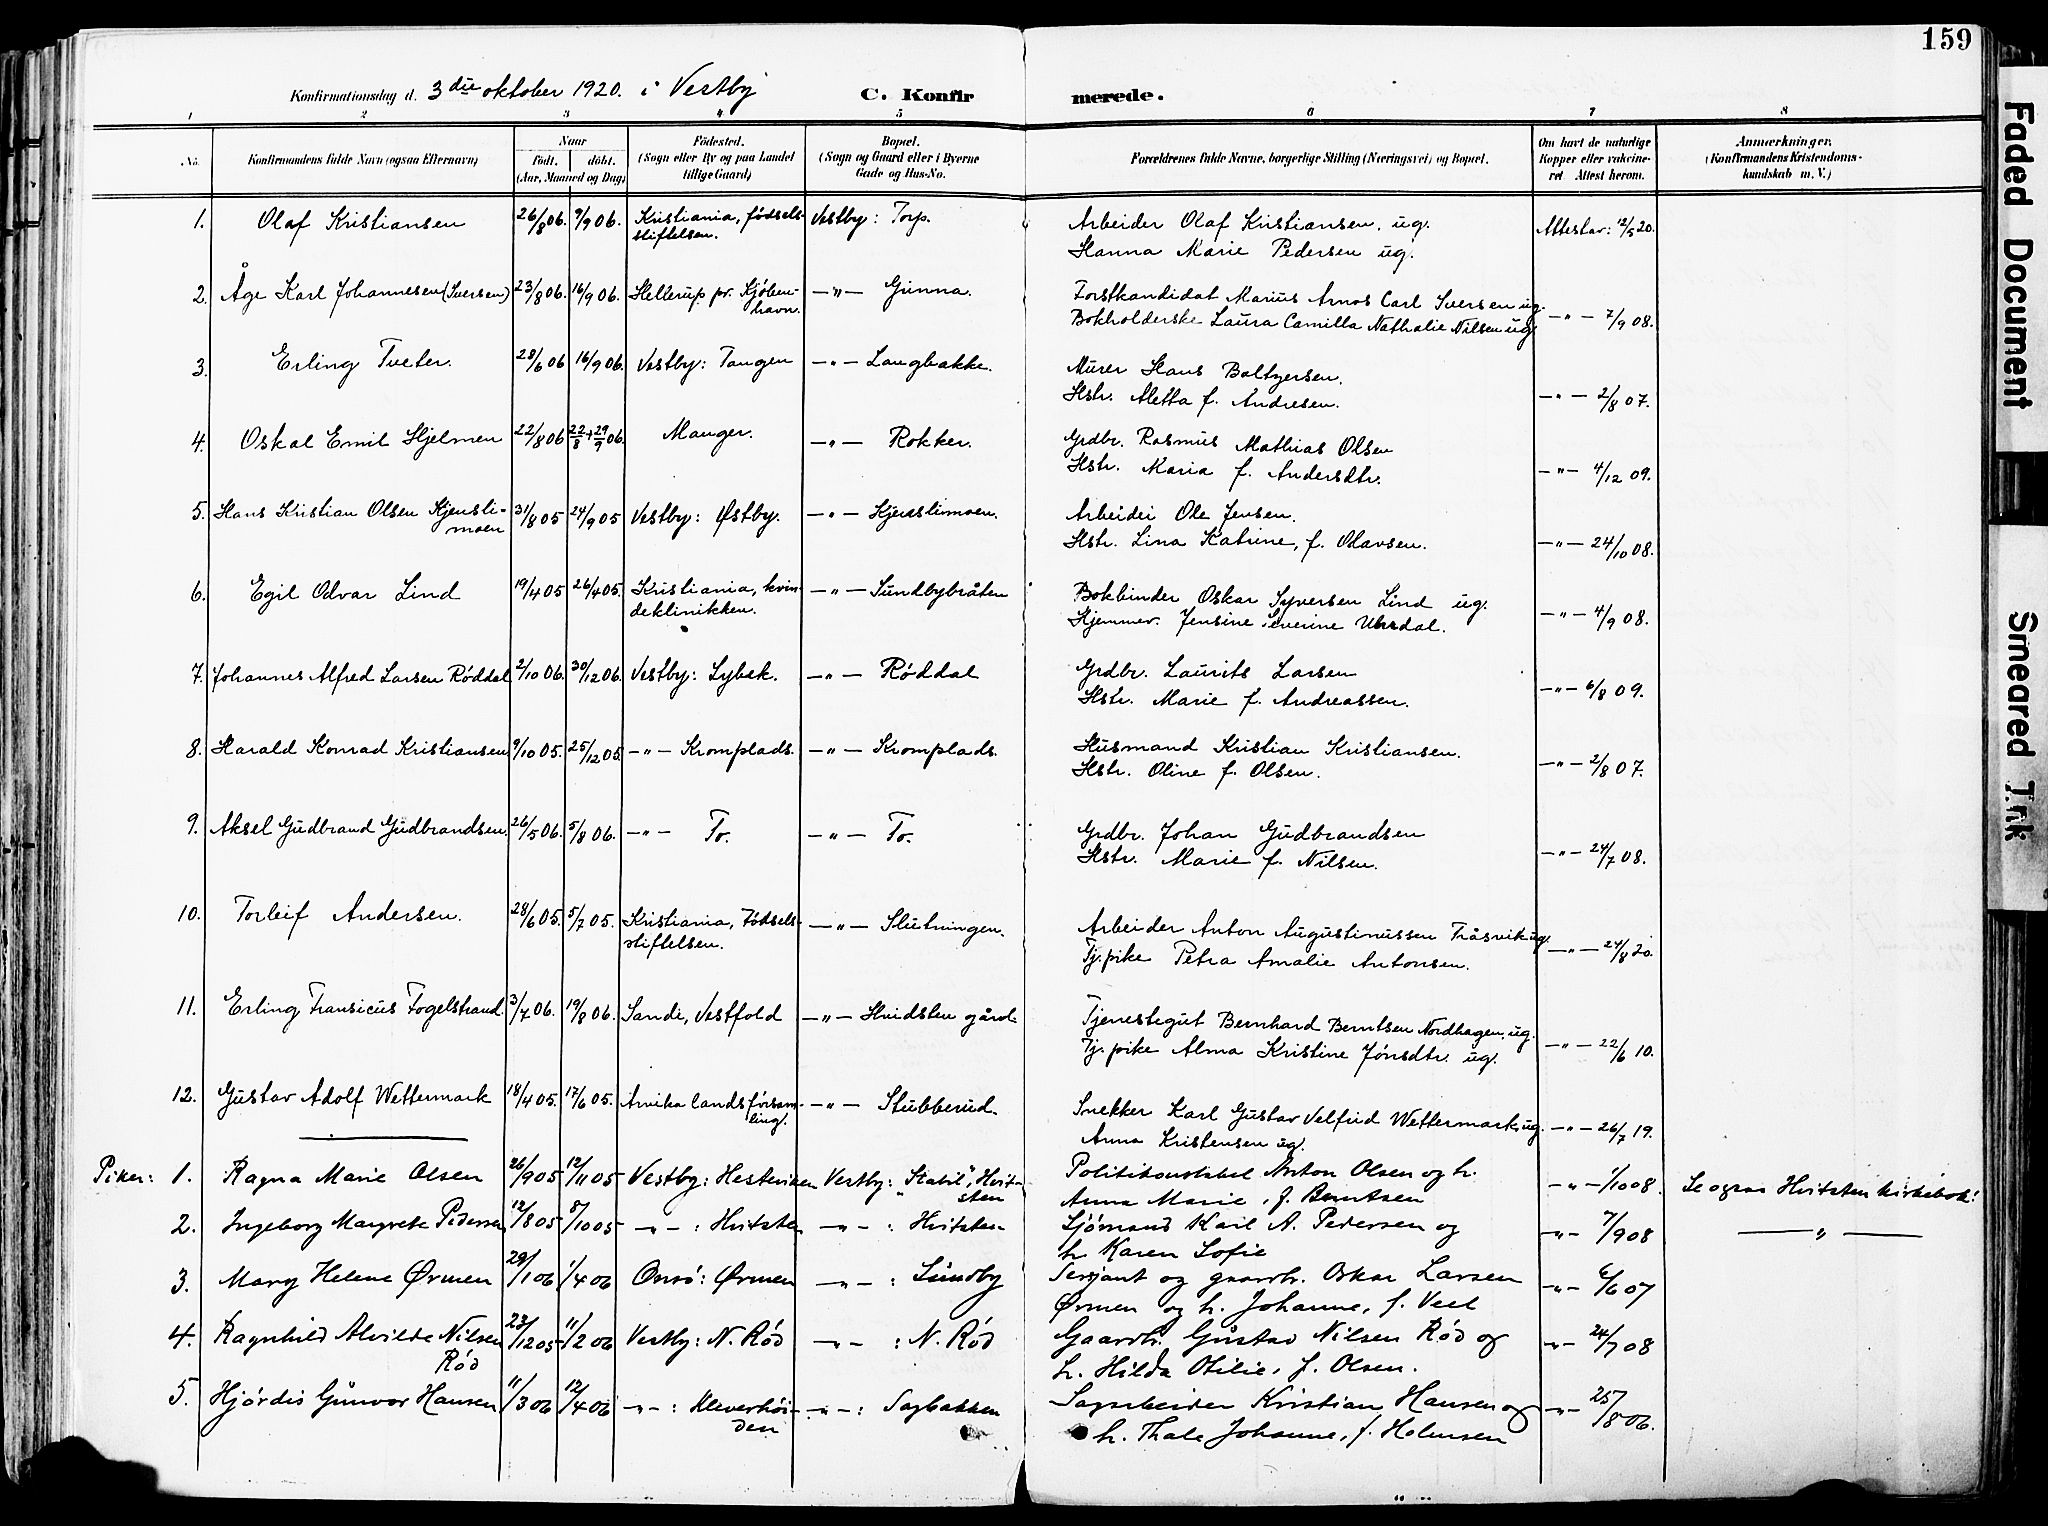 159
Konfirmationsdag d. 3die oktober 1920. i Vestby C. Konfirmerede.
1 2 3 4 5 6 7 8
No. Konfirmandens fulde Navn (ogsaa Efternavn) Naar født. døbt. (Aar, Maaned og Dag) Fødested. (Sogn eller By og paa Landet tillige Gaard) Bopæl. (Sogn og Gaard eller i Byerne Gade og Hus-No. Forældrenes fulde Navne, borgerlige Stilling (Næringsvei) og Bopæl. Om havt de naturlige Kopper eller vakcineret Attest herom. Anmærkninger. (Konfirmandens Kristendomskundskab m. V.)
1. Olaf Kristiansen 26/8 06. 9/9 06. Kristiania, fødsels- Vestby: Torp. Arbeider Olaf Kristiansen, ug. Attester: 12/5 20.
stiftelsen. Hanna Marie Pedersen ug.
2. Åge Karl Johannesen (Iversen) 23/8 06. 16/9 06. Hellerup pr. Kjøben- —"— Gunna. Forstkandidat Marius Arnos Carl Iversen ug.
havn. Bokholderske Laura Camilla Nathalie Nilsen ug. —"— 7/9 08.
3. Erling Tveter. 28/6 06 16/9 06. Vestby: Tangen —"— Langbakke. Murer Hans Baltzersen.
Hstr. Aletta f. Andresen. —"— 2/8 07.
4. Oskal Emil Hjelmen 22/8 06 22/8 + 29/9 06. Manger. —"— Rokker. Grdbr. Rasmus Mathias Olsen
Hstr. Maria f. Andersdtr. —"— 4/12 09.
5. Hans Kristian Olsen Kjensli- 31/8 05 24/9 05 Vestby: Østby. —"— Kjenslimoen. Arbeider Ole Jensen.
moen Hstr. Lina Katrine, f. Olavsen. —"— 24/10 08.
6. Egil Odvar Lind 19/4 05 26/4 05. Kristiania, kvin- —"— Sundbybråten Bokbinder Oskar Syversen Lind ug.
deklinikken. Hjemmev. Jensine Severine Uhrdal. —"— 4/9 08.
7. Johannes Alfred Larsen Røddal 2/10 06. 30/12 06. Vestby: Lybæk. —"— Røddal Grdbr. Laurits Larsen
Hstr. Marie f. Andreassen. —"— 6/8 09.
8. Harald Konrad Kristiansen 9/10 05. 25/12 05. —"— Kromplads. —"— Kromplads. Husmand Kristian Kristiansen.
Hstr. Oline f. Olsen. —"— 2/8 07.
9. Aksel Gudbrand Gudbrandsen. 26/5 06. 5/8 06. —"— To. —"— To. Grdbr. Johan Gudbrandsen
Hstr. Marie f. Nilsen. —"— 24/7 08.
10. Torleif Andersen. 28/6 05. 5/7 05. Kristiania, Fødsels- —"— Slutningen. Arbeider Anton Augustinussen Tråsvik ug.
stiftelsen. Tj.pike Petra Amalie Antonsen. —"— 24/8 20.
11. Erling Fransicus Fogelstrand. 3/7 06. 19/8 06. Sande, Vestfold —"— Hvidsten gård. Tjenestegut Bernhard Berntsen Nordhagen, ug.
Tj. pike Alma Kristine Jonsdtr. ug. —"— 22/6 10.
12. Gustav Adolf Wettermark 18/4 05. 17/6 05. Arvika landsførsam- —"— Stubberud. Snekker Karl Gustav Velfrid Wettermark, ug.
ling. Anna Kristensen ug. —"— 26/7 19.
Piker: 1. Ragna Marie Olsen 26/9 05 12/11 05 Vestby: Hestevigen Vestby: "Stabil", Hvit- Politikonstabel Anton Olsen og h. —"— 1/10 08. Se ogsaa Hvitsten kirkebok!
sten Anna Marie, f. Berntsen
2. Ingeborg Margrete Pedersen 12/8 05 8/10 05 —"— : Hvitsten —"— : Hvitsten Sjømand Karl A. Pedersen og —"— 7/9 08 —"—
h. Karen Sofie
3. Mary Helene Ørmen 28/1 06 1/4 06 Onsø: Ørmen —"— : Sundby Serjant og gaardbr. Oskar Larsen —"— 6/6 07
Ørmen og h. Johanne, f. Veel
4. Ragnhild Alvilde Nilsen 23/12 05 11/2 06 Vestby: N. Rød —"— : N. Rød Gaardbr. Gustav Nilsen Rød og —"— 24/7 08
Rød h. Hilda Otilie, f. Olsen.
5. Hjørdis Gunvor Hansen 11/3 06 12/4 06 —"— : Kleverhøi- —"— : Sagbakken Sagarbeider Kristian Hansen og —"— 25/8 06.
den h. Thale Johanne, f. Holmsen
Faded Document
Smeared Ink